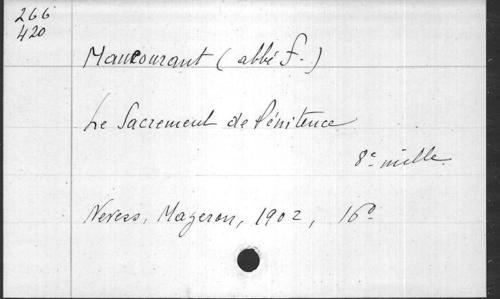 266
420
Maucourant (abbé F.)
Le Sacrement de Pénitence
8e mille.
Nevers, Mazeron, 1902, 16o